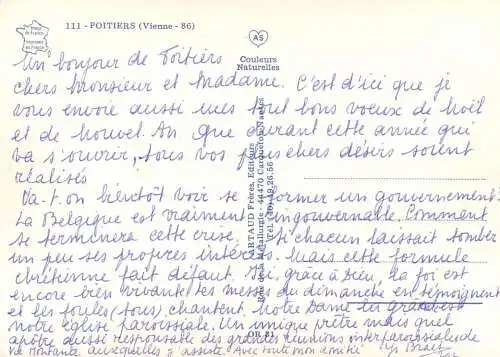 111 - POITIERS (Vienne - 86)
Image de France
Imprimé en France
AS
Couleurs
Naturelles
ARTAUD Frères, Éditeurs
Rue de la Métallurgie - 44470 Carquefou-Nantes
Tél. (40) 49.26.56
Un bonjour de Poitiers
chers monsieur et madame. C'est d'ici que je
vous envoie aussi mes tout bons voeux de Noël
et de Nouvel An que durant cette année qui
va s'ouvrir, tous vos plus chers désirs soient
réalisés
Va-t-on bientôt voir se former un gouvernement?
La Belgique est vraiment ingouvernable. Comment
se terminera cette crise. Si chacun laissait tomber
un peu ses propres intérêts. Mais cette formule
chrétienne fait défaut. Ici, grâce à Dieu, la foi est
encore bien vivante. Les messes du dimanche en témoignent
et les foules (tous) chantent. Notre Dame la grande est
notre église paroissiale. Un unique prêtre mais quel
apôtre aussi responsable des grandes réunions interparoissiales de
auxquelles j'assiste. Avec toute mon amitié